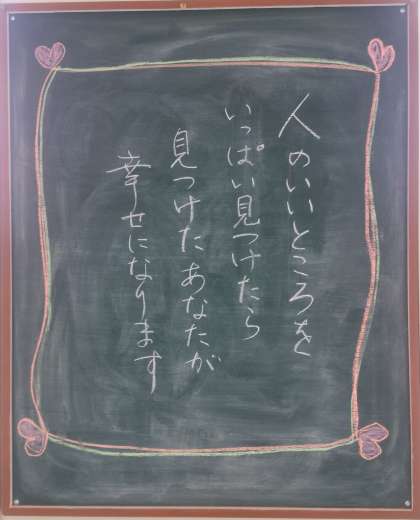 人のいいところを
いっぱい見つけたら
見つけたあなたが
幸せになります